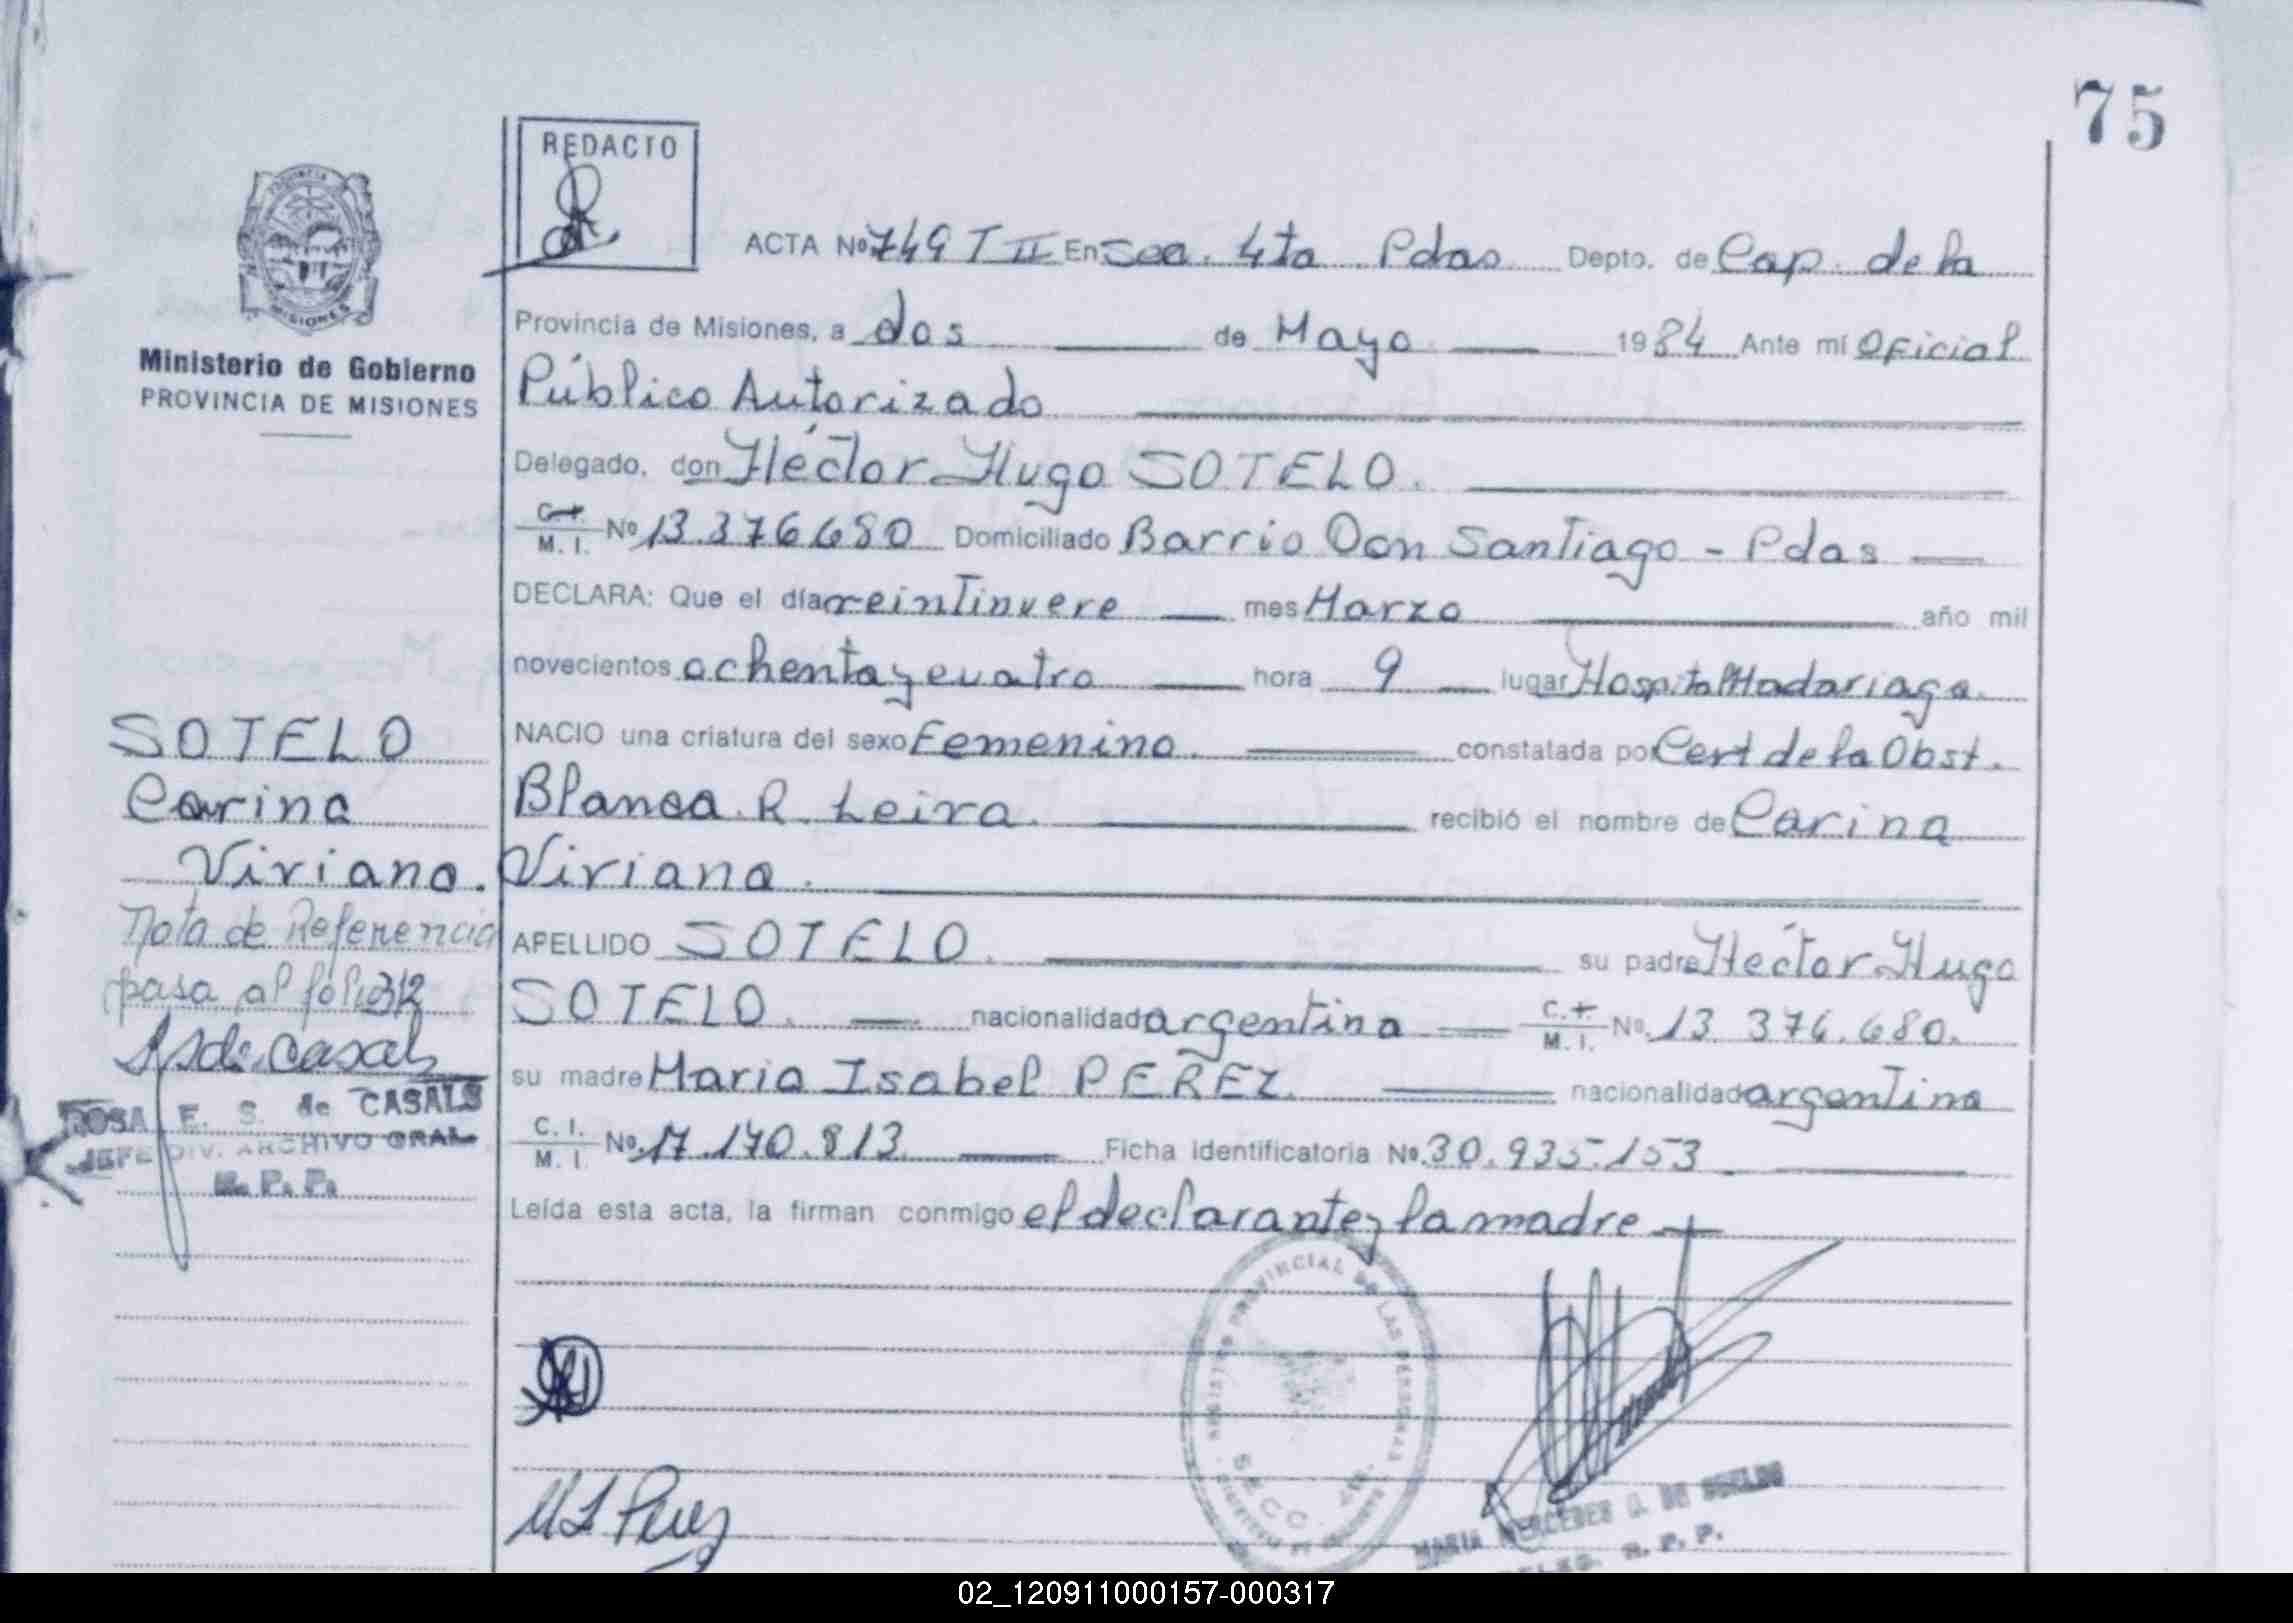 75
REDACTO
ACTA Nº 749 T II En Sec. 4ta Pdas Depto. de Cap. de la
Provincia de Misiones, a dos de Mayo 1984 Ante mí Oficial
Ministerio de Gobierno
PROVINCIA DE MISIONES
Público Autorizado
Delegado, don Héctor Hugo SOTELO.
C.I. M. I. Nº 13.376.680 Domiciliado Barrio Don Santiago - Pdas
DECLARA: Que el día veintinueve mes Marzo año mil
novecientos ochenta y cuatro hora 9 lugar Hospital Madariaga
NACIO una criatura del sexo Femenino. constatada por Cert de la Obst.
Blanca R. Leiva. recibió el nombre de Carina
Viviana.
APELLIDO SOTELO. su padre Héctor Hugo
SOTELO. nacionalidad argentina C.I. M. I. Nº 13.376.680.
su madre Maria Isabel PEREZ. nacionalidad argentina
C. I. M. I. Nº 17.170.813 Ficha identificatoria Nº 30.935.153
Leída esta acta, la firman conmigo el declarante y la madre
SOTELO
Carina
Viviana.
Nota de Referencia
pasa al folio 312
ROSA E. S. de CASALS
JEFE DIV. ARCHIVO GRAL
R. P. P.
PROVINCIA
MISIONES
REGISTRO PROVINCIAL DE LAS PERSONAS
SECC.
M I Perez
MARIA MERCEDES
R. P. P.
02_120911000157-000317